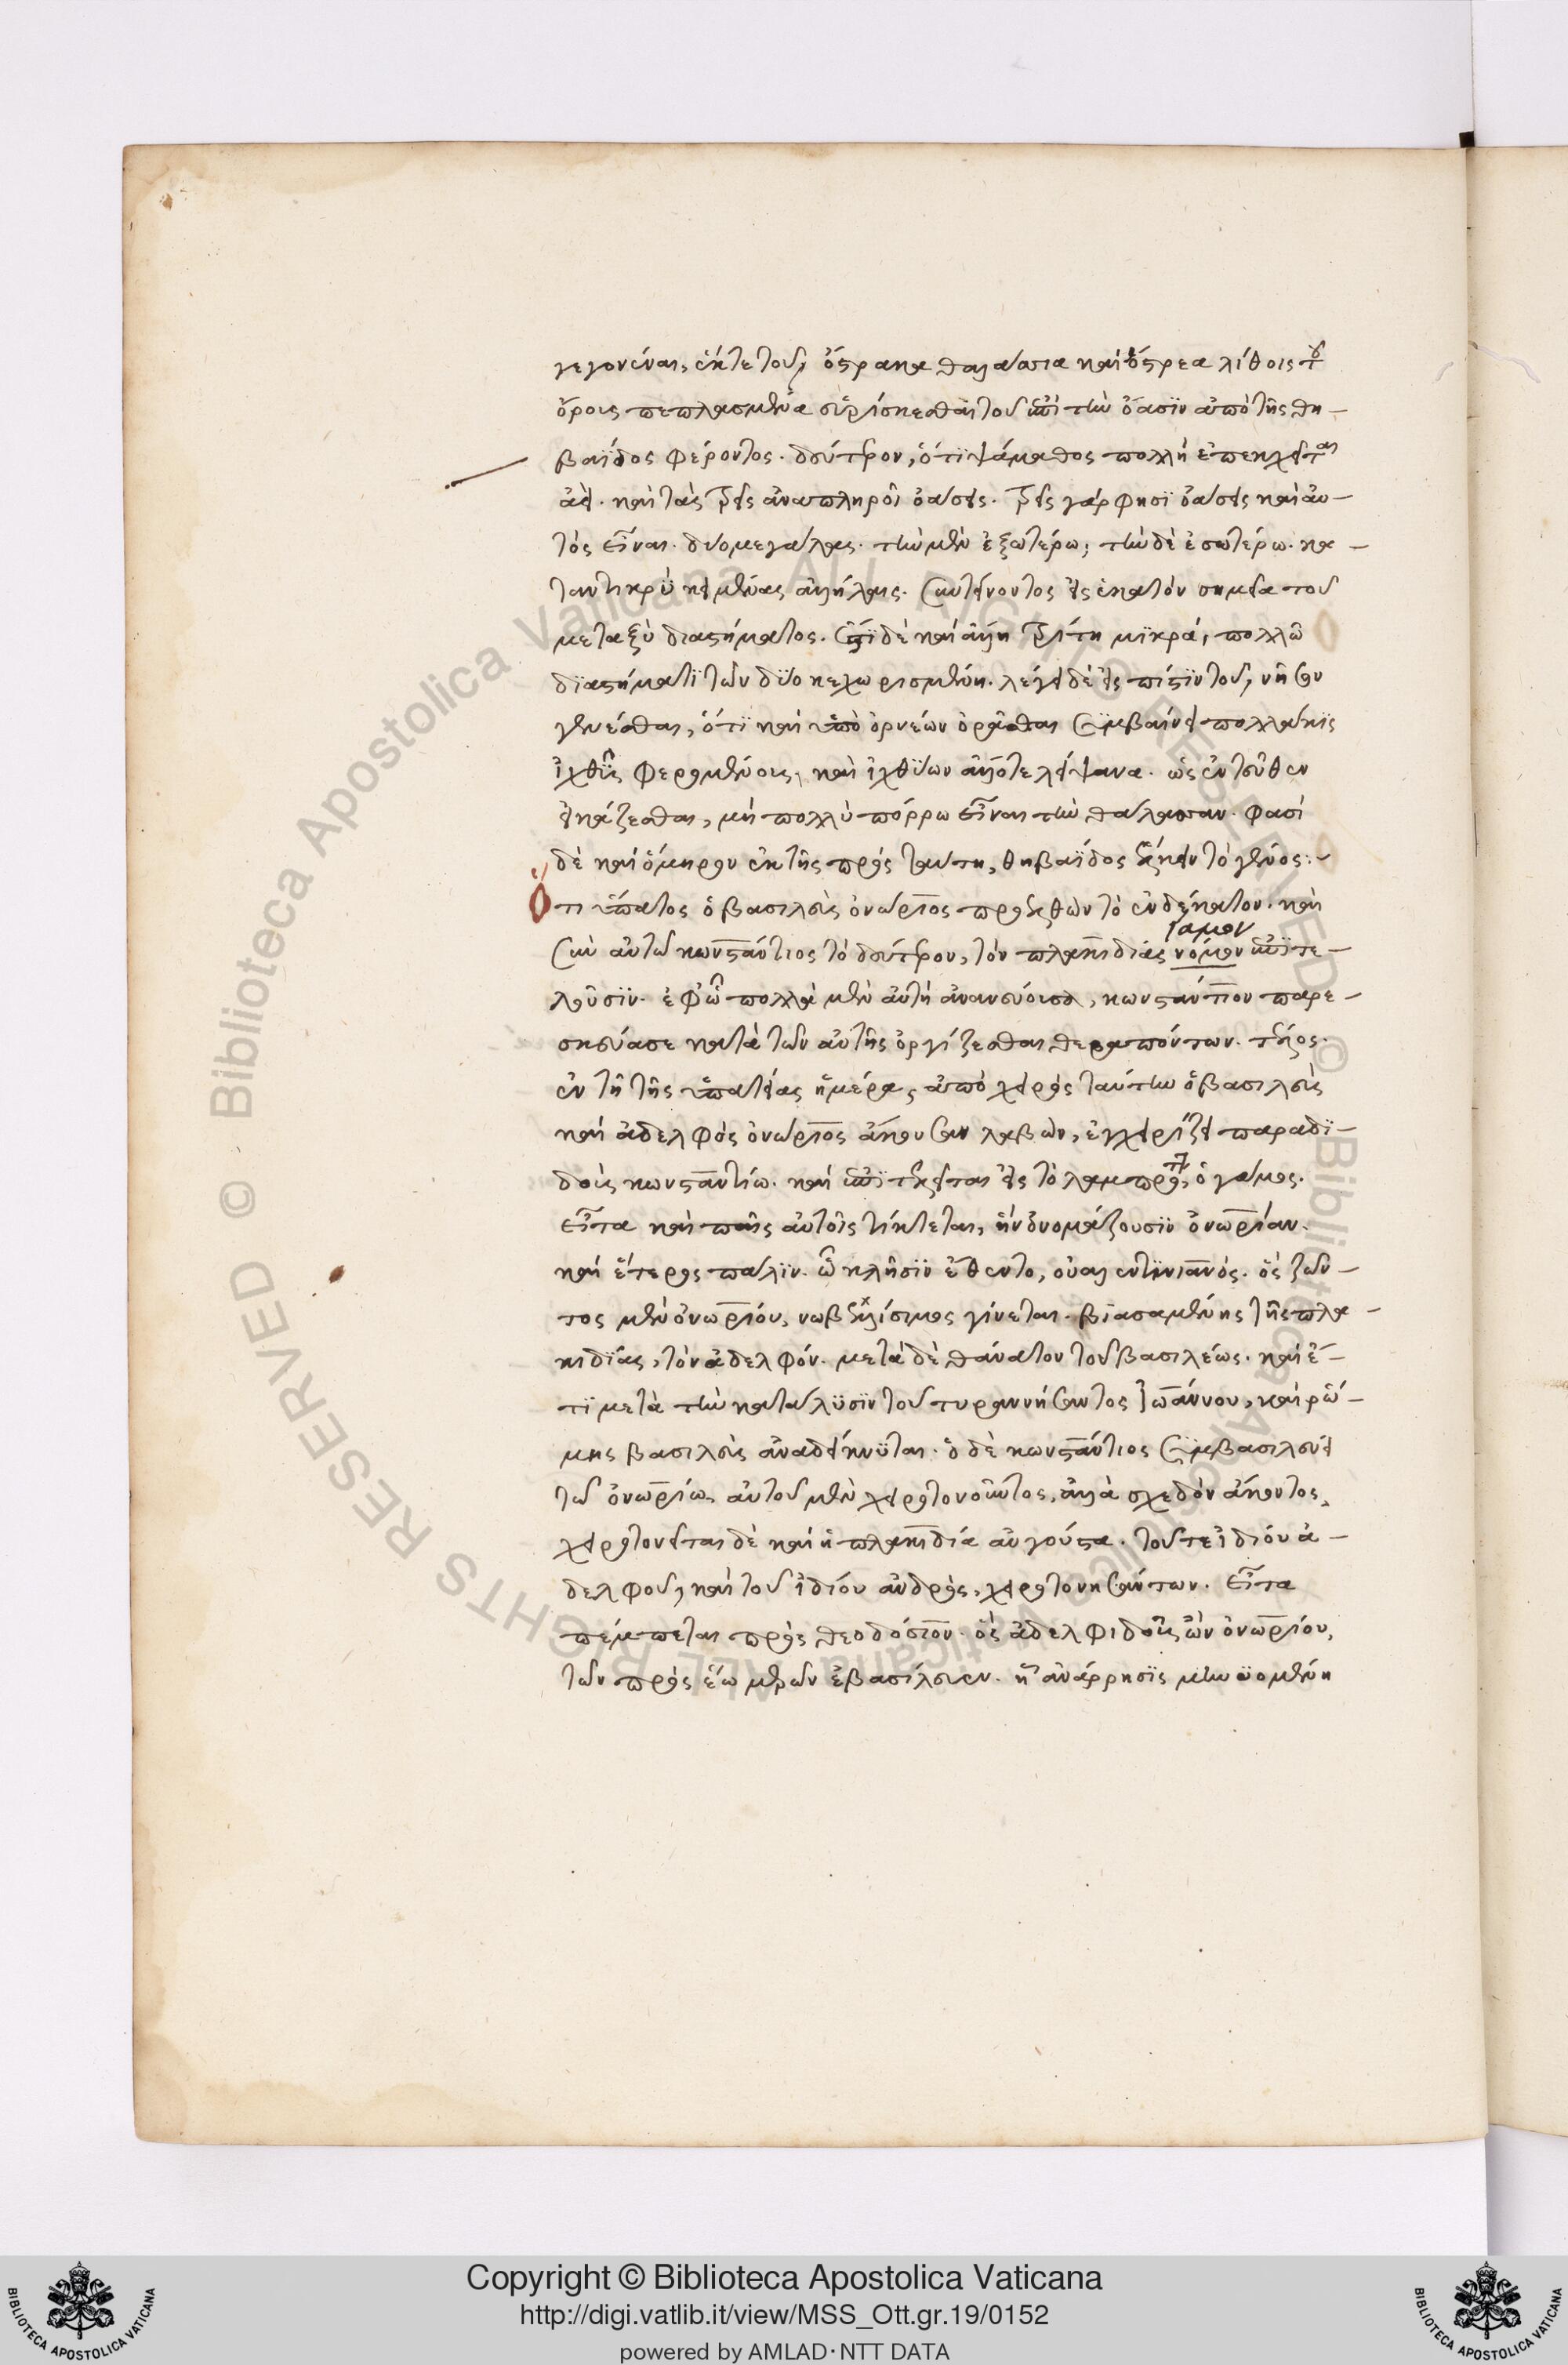 γεγονέναι, ἐκ τε τοῦ, ὄστρακα θαλάσσια καὶ ὄστρεα λίθοις τοῦ
ὄρους πεπλασμένα εὑρίσκεσθαι τοῦ ἐπὶ τὴν ὄασϊν ἀπὸ τῆς θη-
βαΐδος φέροντος. δεύτερον, ὅτϊ ψάμαθος πολλὴ ἐπεκχεῖται
ἀεί. καὶ τὰς τρεῖς ἀναπληροῖ ὀάσεις. τρεῖς γάρ φησϊ ὀάσεις καὶ αὐ-
τὸς εἶναι. δύο μεγάλας. τὴν μὲν ἐξωτέρω, τὴν δὲ ἐσωτέρω. κα-
ταντικρὺ κειμένας ἀλλήλαις. συντείνοντος εἰς ἑκατὸν σημεῖα τοῦ
μεταξὺ διαστήματος. ἔστϊ δὲ καὶ ἄλλη τρίτη μϊκρά, πολλῶ
δϊαστήματϊ τῶν δύο κεχωρισμένη. λέγει δὲ εἰς πίστϊν τοῦ, νῆσον
γενέσθαι, ὅτϊ καὶ ὑπὸ ὀρνέων ὁρᾶσθαι συμβαίνει πολλάκϊς
ἰχθῦς φερομένους, καὶ ἰχθύων ἄλλοτε λείψανα. ὡς ἐντεῦθεν
εἰκάζεσθαι, μὴ πολλὺ πόρρω εἶναι τὴν θάλασσαν. φασὶ
δὲ καὶ ὅμηρον ἐκ τῆς πρὸς ταύτη, θηβαΐδος ἕλκειν τὸ γένος:-
Ὅτι ὕπατος ὁ βασιλεὺς ὀνώριος προελθὼν τὸ ἑνδέκατον. καὶ
σὺν αὐτῶ κωνστάντιος τὸ δεύτερον, τὸν πλακιδίας νόμον ἐπϊτε-
γάμον
λοῦσϊν. ἐφ' ὧ πολλὰ μὲν αὐτὴ ἀνανεύουσα, κωνστάντιον παρε-
σκεύασε κατὰ τῶν αὐτῆς ὀργίζεσθαι θεραπόντων. τέλος.
ἐν τῆ τῆς ὑπατείας ἡμέρα, ἀπὸ χειρὸς ταύτην ὁ βασιλεὺς
καὶ ἀδελφὸς ὀνώριος ἄκουσαν λαβὼν, ἐγχειρίζει παραδϊ-
δοὺς κωνσταντίω. καὶ ἐπϊτελεῖται εἰς τὸ λαμπρότατον, ὁ γάμος.
εἶτα καὶ παῖς αὐτοῖς τίκτεται, ἣν ὀνομάζουσϊν ὀνωρίαν.
καὶ ἕτερος πάλϊν. ὧ κλῆσϊν ἔθεντο, οὐαλεντϊνιανός. ὃς ζῶν-
τος μὲν ὀνωρίου, νωβελλίσιμος γίνεται. βϊασαμένης τῆς πλα-
κιδϊας, τὸν ἀδελφόν. μετὰ δὲ θάνατον τοῦ βασιλέως. καὶ ἔ-
τϊ μετὰ τὴν κατάλϋσϊν τοῦ τυραννήσαντος ἰωάννου, καὶ ῥώ-
μης βασιλεὺς ἀναδείκνϋται. ὁ δὲ κωνστάντιος συμβασιλεύει
τῶ ὀνωρίω, αὐτοῦ μὲν χειροτονοῦντος, ἀλλὰ σχεδὸν ἄκοντος.
χειροτονεῖται δὲ καὶ ἡ πλακιδία αὐγούστα. τοῦ τε ἰδίου ἀ-
δελφοῦ, καὶ τοῦ ἰδίου ἀνδρὸς, χειροτονησάντων. εἶτα
πέμπεται πρὸς θεοδόσιον. ὃς ἀδελφιδοῦς ὢν ὀνωρίου,
τῶν πρὸς ἕω μερῶν ἐβασίλευεν. ἡ ἀνάρρησϊς μηνϋομένη
Copyright © Biblioteca Apostolica Vaticana
http://digi.vatlib.it/view/MSS_Ott.gr.19/0152
powered by AMLAD·NTT DATA